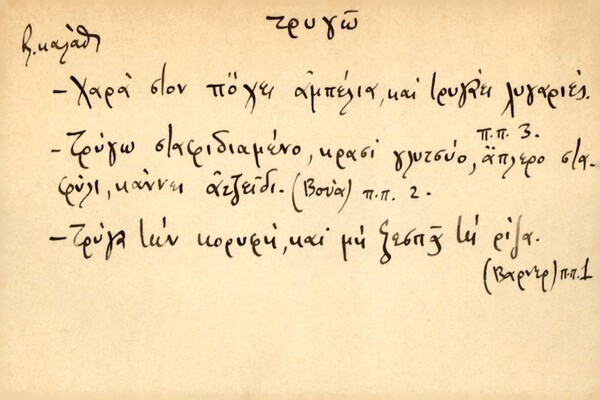 τρυγῶ
β. καλάθι
– Χαρὰ στον πὄχει ἀμπέλια, καὶ τρυγάει λυγαριές.
π.π. 3.
– Τρύγω σταφιδιαμένο, κρασὶ γλυτσύο, ἄπλερο στα-
φύλι, κάννει ἀτζεῖδι. (Βουὰ) π.π. 2.
– Τρύγα τὴν κορυφή, καὶ μὴ ξεσπᾷ τὴ ρίζα.
(Βάρνερ) π.π. 1